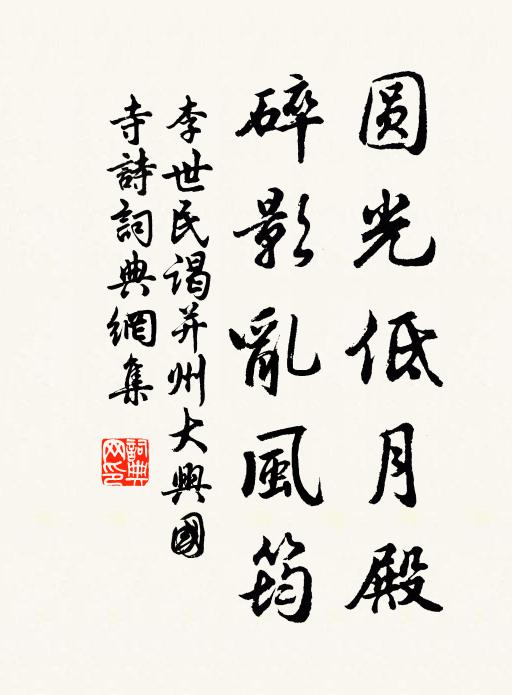 圆光低月殿
碎影亂風筠
李世民谒并州大興國
寺詩詞典網集
詞典
网印